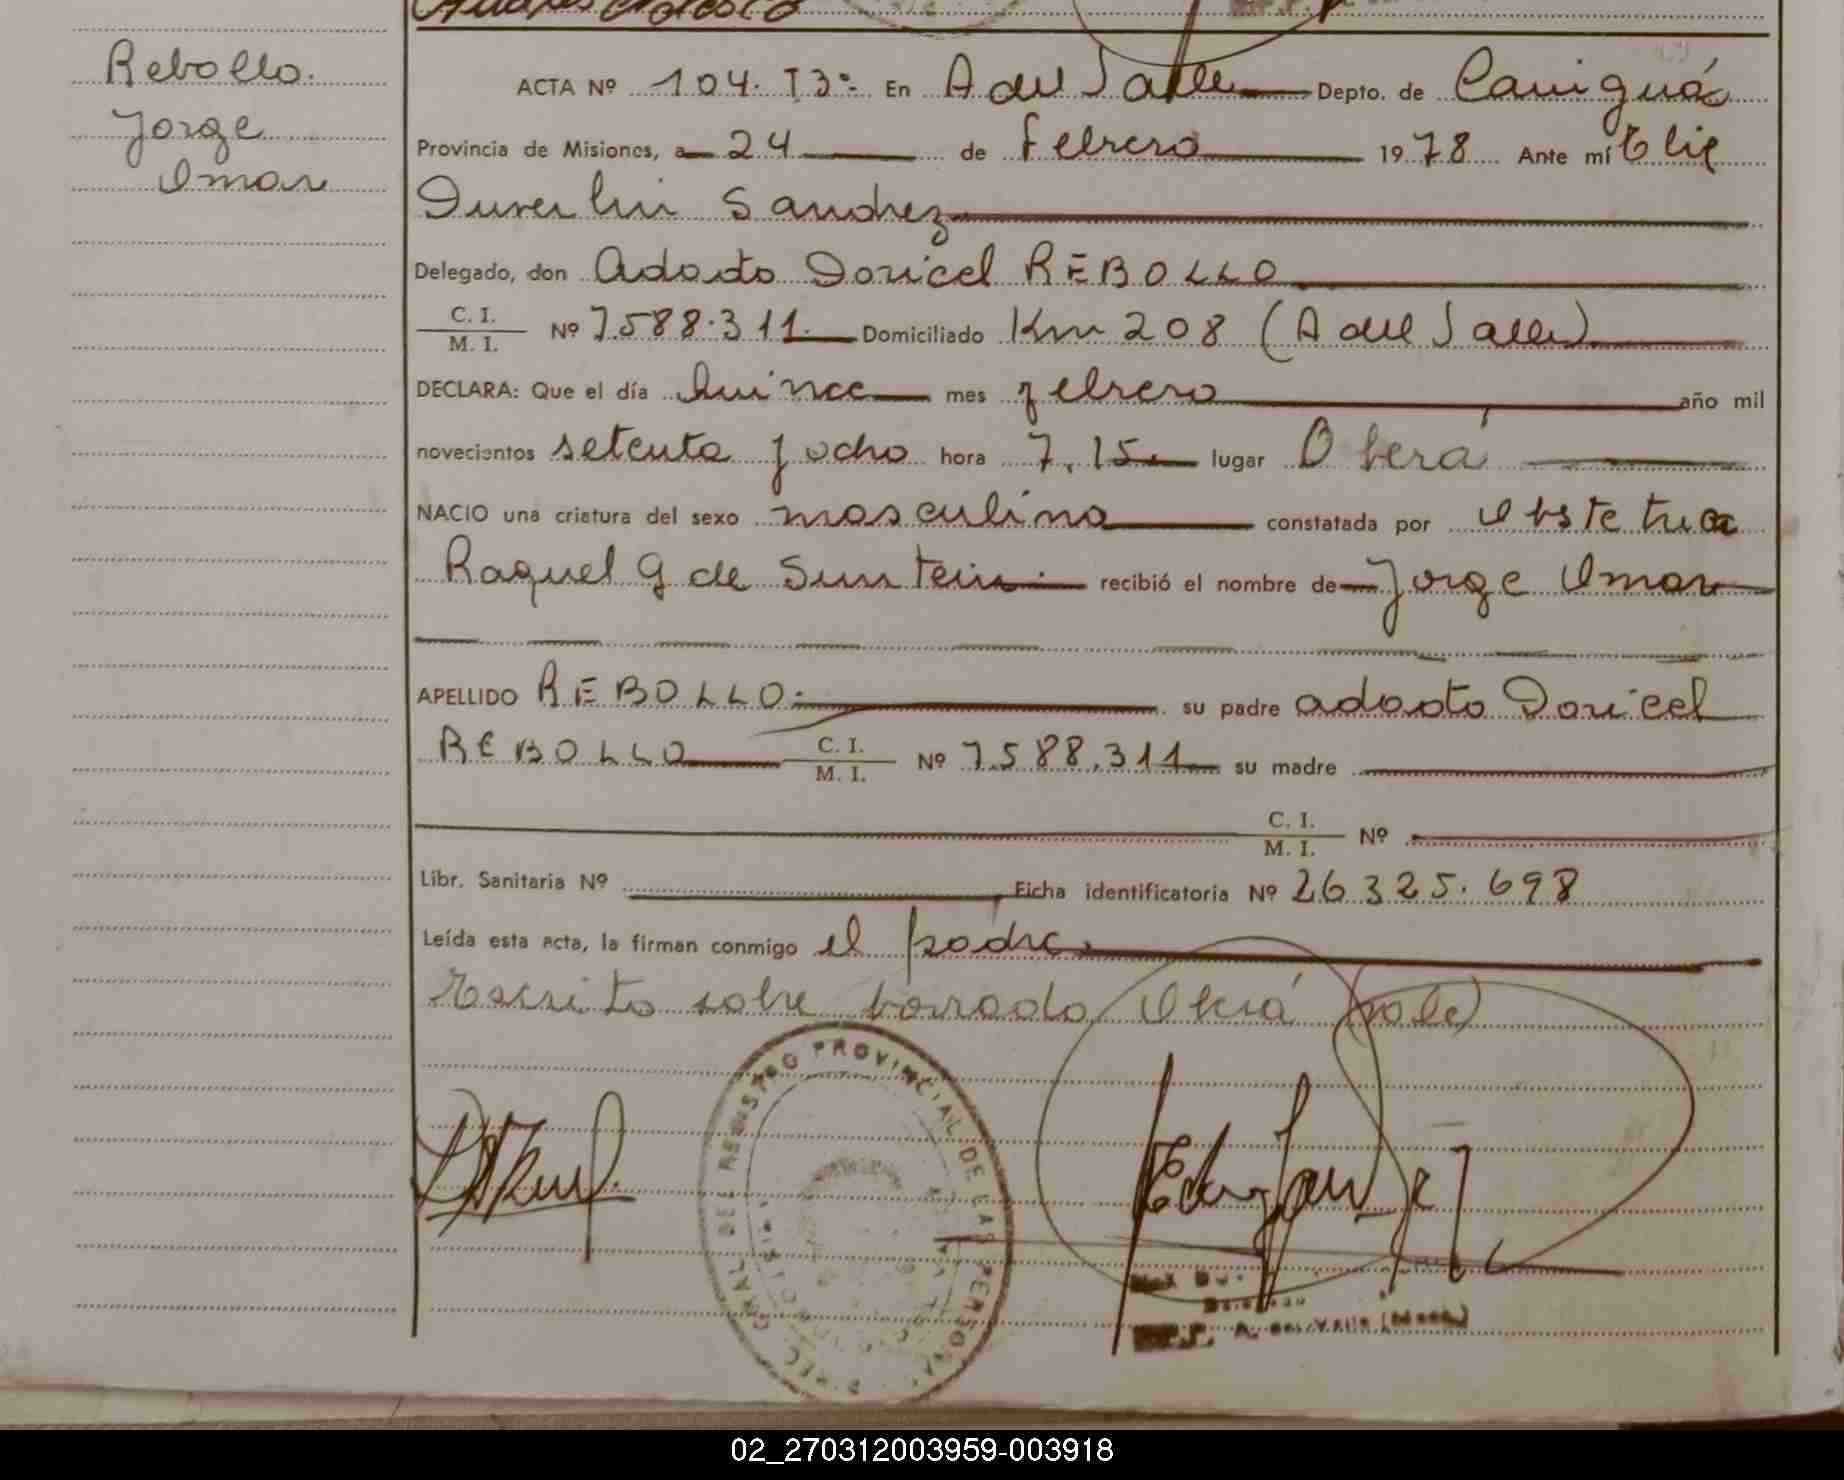 Rebollo.
Jorge
Omar
ACTA Nº 104. T3º En A del Valle Depto. de Cainguá
Provincia de Misiones, a 24 de febrero 1978 Ante mí
Sanchez
Delegado, don Adosto Doricel REBOLLO
C. I.
M. I. Nº 7.588.311. Domiciliado Km 208 (A del Valle)
DECLARA: Que el día quince mes febrero año mil
novecientos setenta y ocho hora 7,15. lugar Oberá
NACIO una criatura del sexo masculino constatada por Obstetrica
Raquel G de recibió el nombre de Jorge Omar
APELLIDO REBOLLO. su padre adosto Doricel
REBOLLO C. I.
M. I. Nº 7.588.311 su madre
C. I.
M. I. Nº
Libr. Sanitaria Nº Ficha identificatoria Nº 26325.698
Leída esta acta, la firman conmigo el padre.
Escrito sobre borrado Oberá vale)
REGISTRO PROVINCIAL DE LAS PERSONAS
A. del Valle
02_270312003959-003918